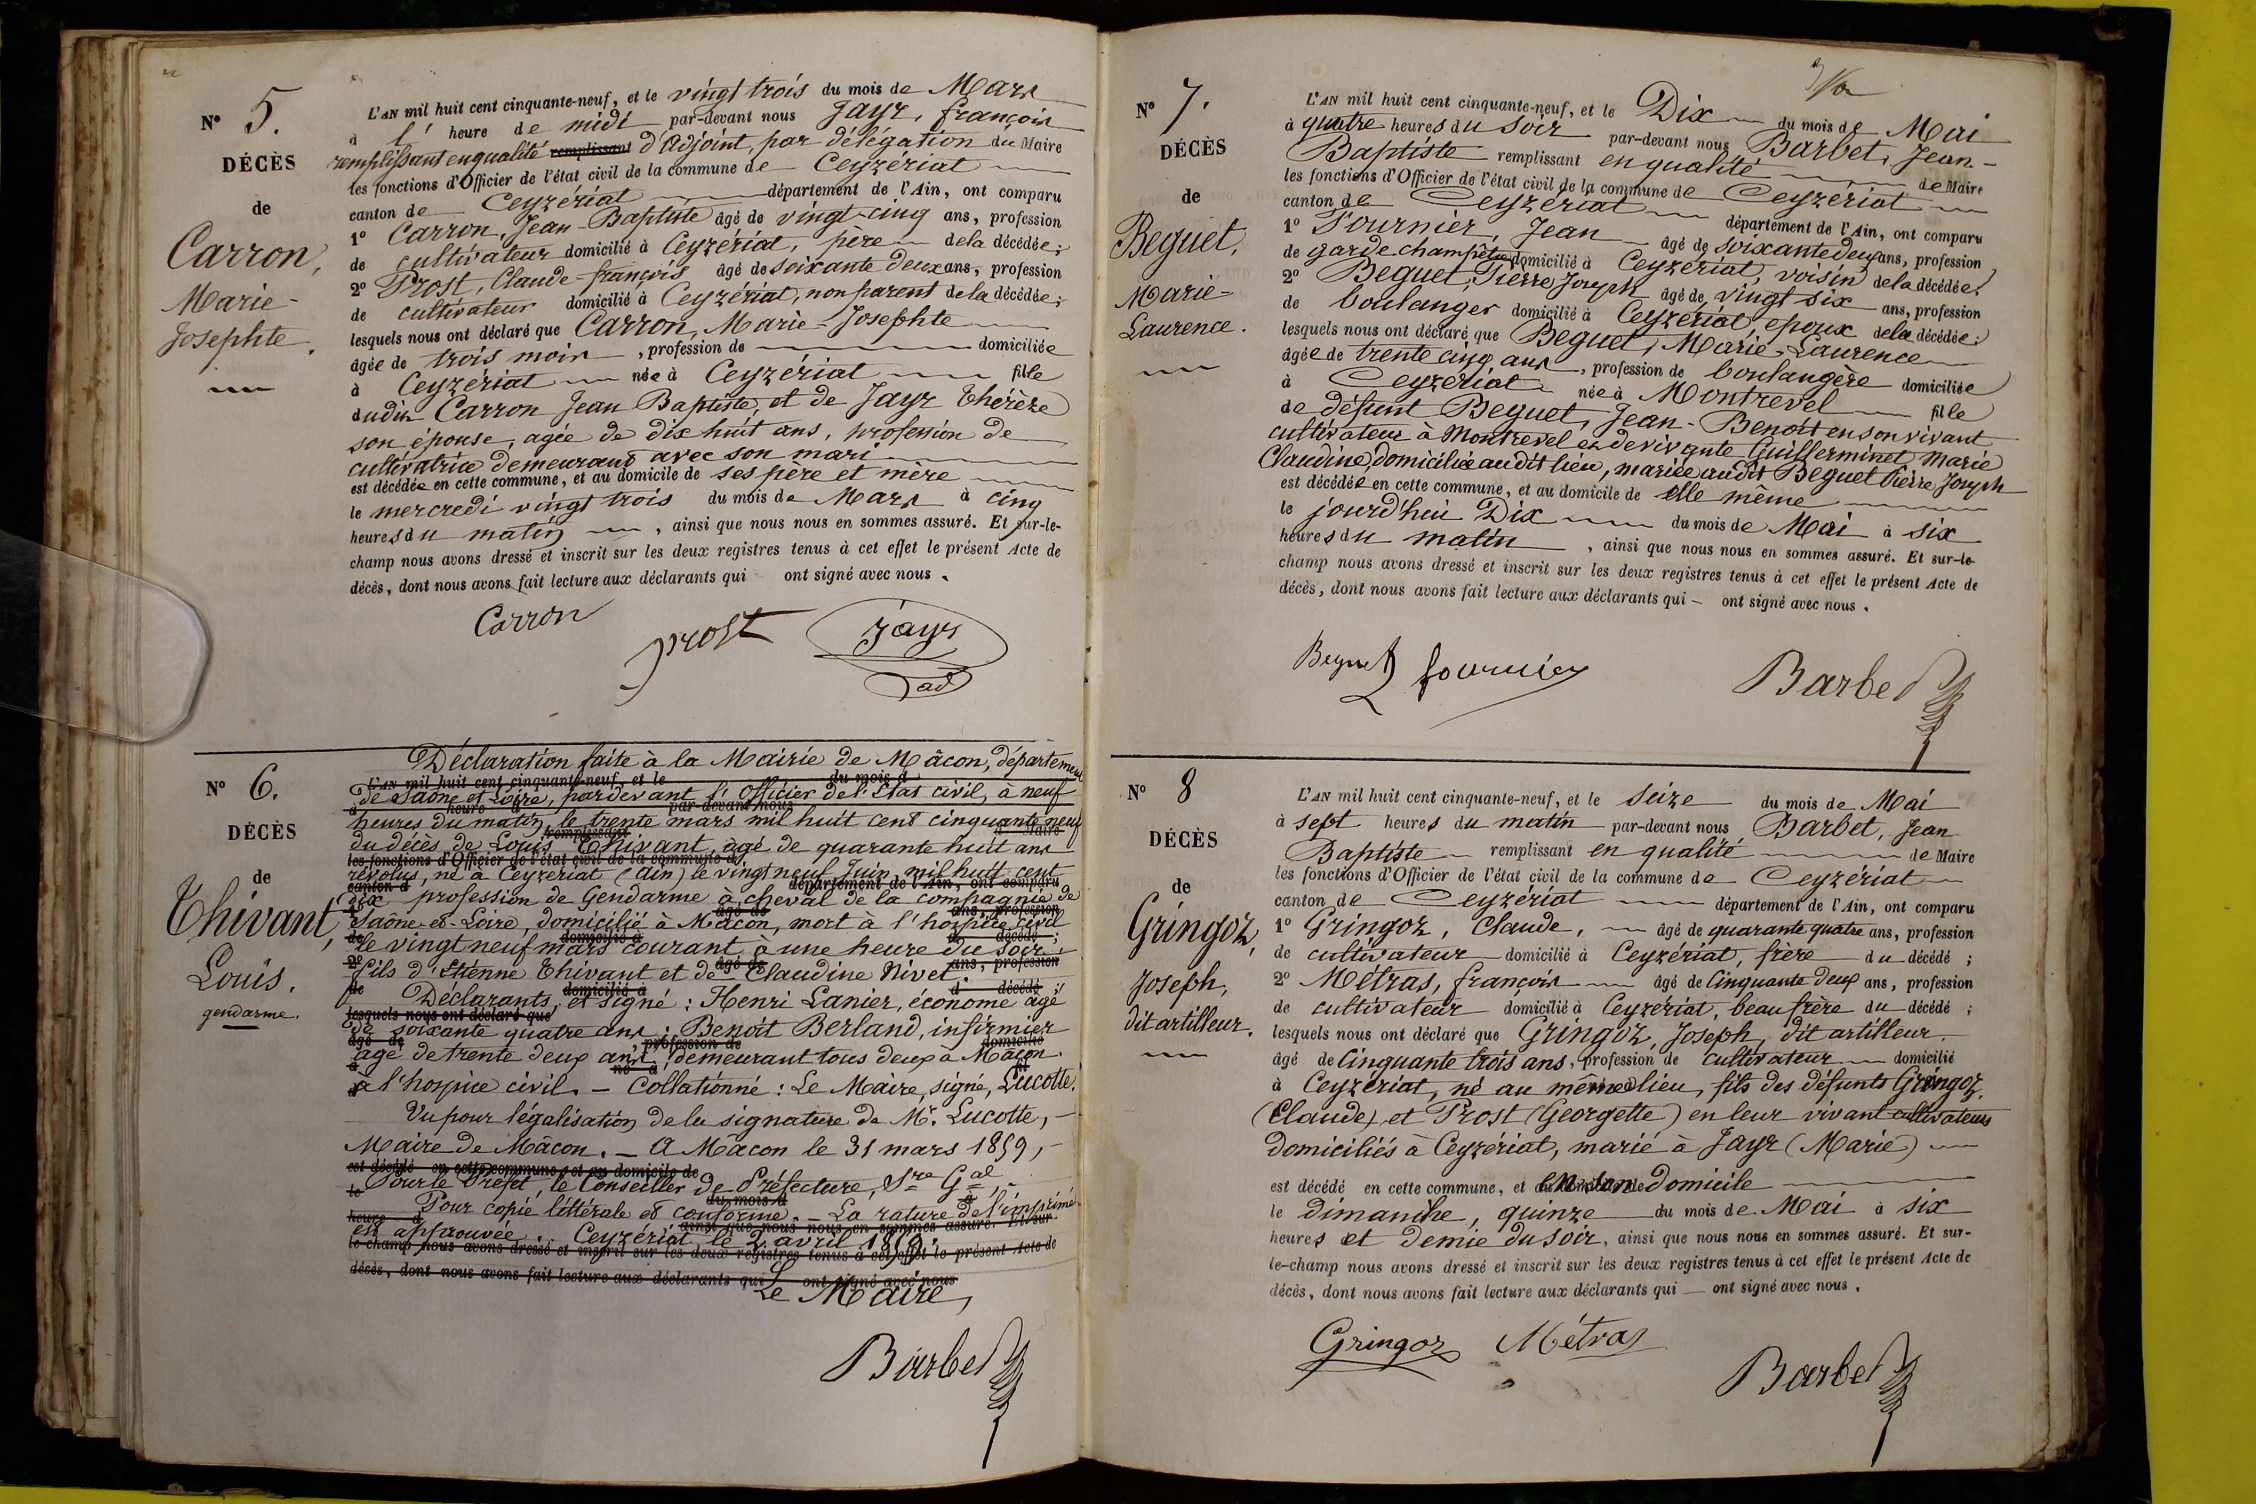 N° 5.
DÉCÈS
de
Carron,
Marie-
Josephte.
L'AN mil huit cent cinquante-neuf, et le vingt trois du mois de Mars
à l' heure de midi par-devant nous Jayr, françois
remplissant en qualité remplissant d'adjoint, par délégation du Maire
les fonctions d'Officier de l'état civil de la commune de Ceyzériat
canton de Ceyzériat département de l'Ain, ont comparu
1° Carron, Jean-Baptiste âgé de vingt-cinq ans, profession
de cultivateur domicilié à Ceyzériat, père de la décédée;
2° Prost, Claude-françois âgé de soixante deux ans, profession
de cultivateur domicilié à Ceyzériat, non parent de la décédée;
lesquels nous ont déclaré que Carron, Marie-Josephte
âgée de trois mois, profession de domiciliée
à Ceyzériat née à Ceyzériat fille
dudit Carron Jean Baptiste, et de Jayr Thérèze
son épouse, agée de dix huit ans, profession de
cultivatrice demeurant avec son mari
est décédée en cette commune, et au domicile de ses père et mère
le mercredi vingt trois du mois de Mars à cinq
heures du matin, ainsi que nous nous en sommes assuré. Et sur-le-
champ nous avons dressé et inscrit sur les deux registres tenus à cet effet le présent Acte de
décès, dont nous avons fait lecture aux déclarants qui ont signé avec nous.
Carron
prost
Jayr
ad
N° 6.
DÉCÈS
de
Thivant,
Louis.
gendarme.
Déclaration faite à la Mairie de Mâcon, département
L'AN mil huit cent cinquante-neuf, et le du mois d
de Saône et Loire, pardevant l'Officier de l'Etat civil, à neuf
à heure d par-devant nous
heures du matin, le trente mars mil huit cent cinquante neuf
remplissant Maire
du décès de Louis Thivant, âgé de quarante huit ans
les fonctions d'Officier de l'état civil de la commune d
révolus, né à Ceyzériat (Ain) le vingt neuf Juin mil huit cent
canton d département de l'Ain, ont comparu
dix profession de Gendarme à cheval de la compagnie de
âgé de ans, profession
Saône-et-Loire, domicilié à Mâcon, mort à l'hospice civil
de domicilié à d décédé;
le vingt neuf mars courant à une heure du soir
2° âgé de ans, profession
fils d'Etienne Thivant et de Claudine Nivet
de domicilié à d décédé;
Déclarants, et signé: Henri Lanier, économe âgé
lesquels nous ont déclaré que
de soixante quatre ans: Benoit Berland, infirmier
âgé de profession de domicilié
agé de trente deux ans, demeurant tous deux à Mâcon
à né à fil
à l'hospice civil. – Collationné: Le Maire, signé, Lucotte.
Vu pour légalisation de la signature de Mr. Lucotte, –
Maire de Mâcon. – A Mâcon le 31 mars 1859, –
est décédé en cette commune, et au domicile de
Pour le Préfet, le Conseiller de Préfecture, Sre Gal,
le du mois d à
Pour copie littérale et conforme. – La rature de l'imprimé
heure d ainsi que nous nous en sommes assuré. Et sur-
est approuvée. Ceyzériat, le 2 avril 1859.
le-champ nous avons dressé et inscrit sur les deux registres tenus à cet effet le présent Acte de
décès, dont nous avons fait lecture aux déclarants qui ont signé avec nous
Le Maire,
Barbet
N° 7.
DÉCÈS
de
Beguet,
Marie-
Laurence.
L'AN mil huit cent cinquante-neuf, et le Dix du mois de Mai
à quatre heures du soir par-devant nous Barbet, Jean-
Baptiste remplissant en qualité de Maire
les fonctions d'Officier de l'état civil de la commune de Ceyzériat
canton de Ceyzériat département de l'Ain, ont comparu
1° Fournier, Jean âgé de soixante deux ans, profession
de garde champêtre domicilié à Ceyzériat, voisin de la décédée;
2° Beguet, Pierre Joseph âgé de vingt six ans, profession
de boulanger domicilié à Ceyzériat, epoux de la décédée;
lesquels nous ont déclaré que Beguet, Marie-Laurence
âgée de trente cinq ans, profession de boulangère domiciliée
à Ceyzériat née à Montrevel fille
de défunt Beguet, Jean-Benoit en son vivant
cultivateur à Montrevel et de vivante Guillerminet Marie
Claudine, domiciliée audit lieu, mariée audit Beguet Pierre Joseph
est décédée en cette commune, et au domicile de elle même
le jourd'hui Dix du mois de Mai à six
heures du matin, ainsi que nous nous en sommes assuré. Et sur-le-
champ nous avons dressé et inscrit sur les deux registres tenus à cet effet le présent Acte de
décès, dont nous avons fait lecture aux déclarants qui – ont signé avec nous.
Beguet fournier
Barbet
N° 8
DÉCÈS
de
Gringoz,
Joseph,
dit artilleur.
L'AN mil huit cent cinquante-neuf, et le seize du mois de Mai
à sept heures du matin par-devant nous Barbet, Jean
Baptiste remplissant en qualité de Maire
les fonctions d'Officier de l'état civil de la commune de Ceyzériat
canton de Ceyzériat département de l'Ain, ont comparu
1° Gringoz, Claude, âgé de quarante quatre ans, profession
de cultivateur domicilié à Ceyzériat, frère du décédé;
2° Métras, françois âgé de Cinquante deux ans, profession
de cultivateur domicilié à Ceyzériat, beau frère du décédé;
lesquels nous ont déclaré que Gringoz, Joseph, dit artilleur
âgé de Cinquante trois ans, profession de cultivateur domicilié
à Ceyzériat, né au même lieu, fils des défunts Gringoz
(Claude) et Prost (Georgette) en leur vivant cultivateurs
domiciliés à Ceyzériat, marié à Jayr (Marie)
est décédé en cette commune, et en son domicile
le dimanche, quinze du mois de Mai à six
heures et demie du soir, ainsi que nous nous en sommes assuré. Et sur-
le-champ nous avons dressé et inscrit sur les deux registres tenus à cet effet le présent Acte de
décès, dont nous avons fait lecture aux déclarants qui — ont signé avec nous.
Gringoz Métras
Barbet